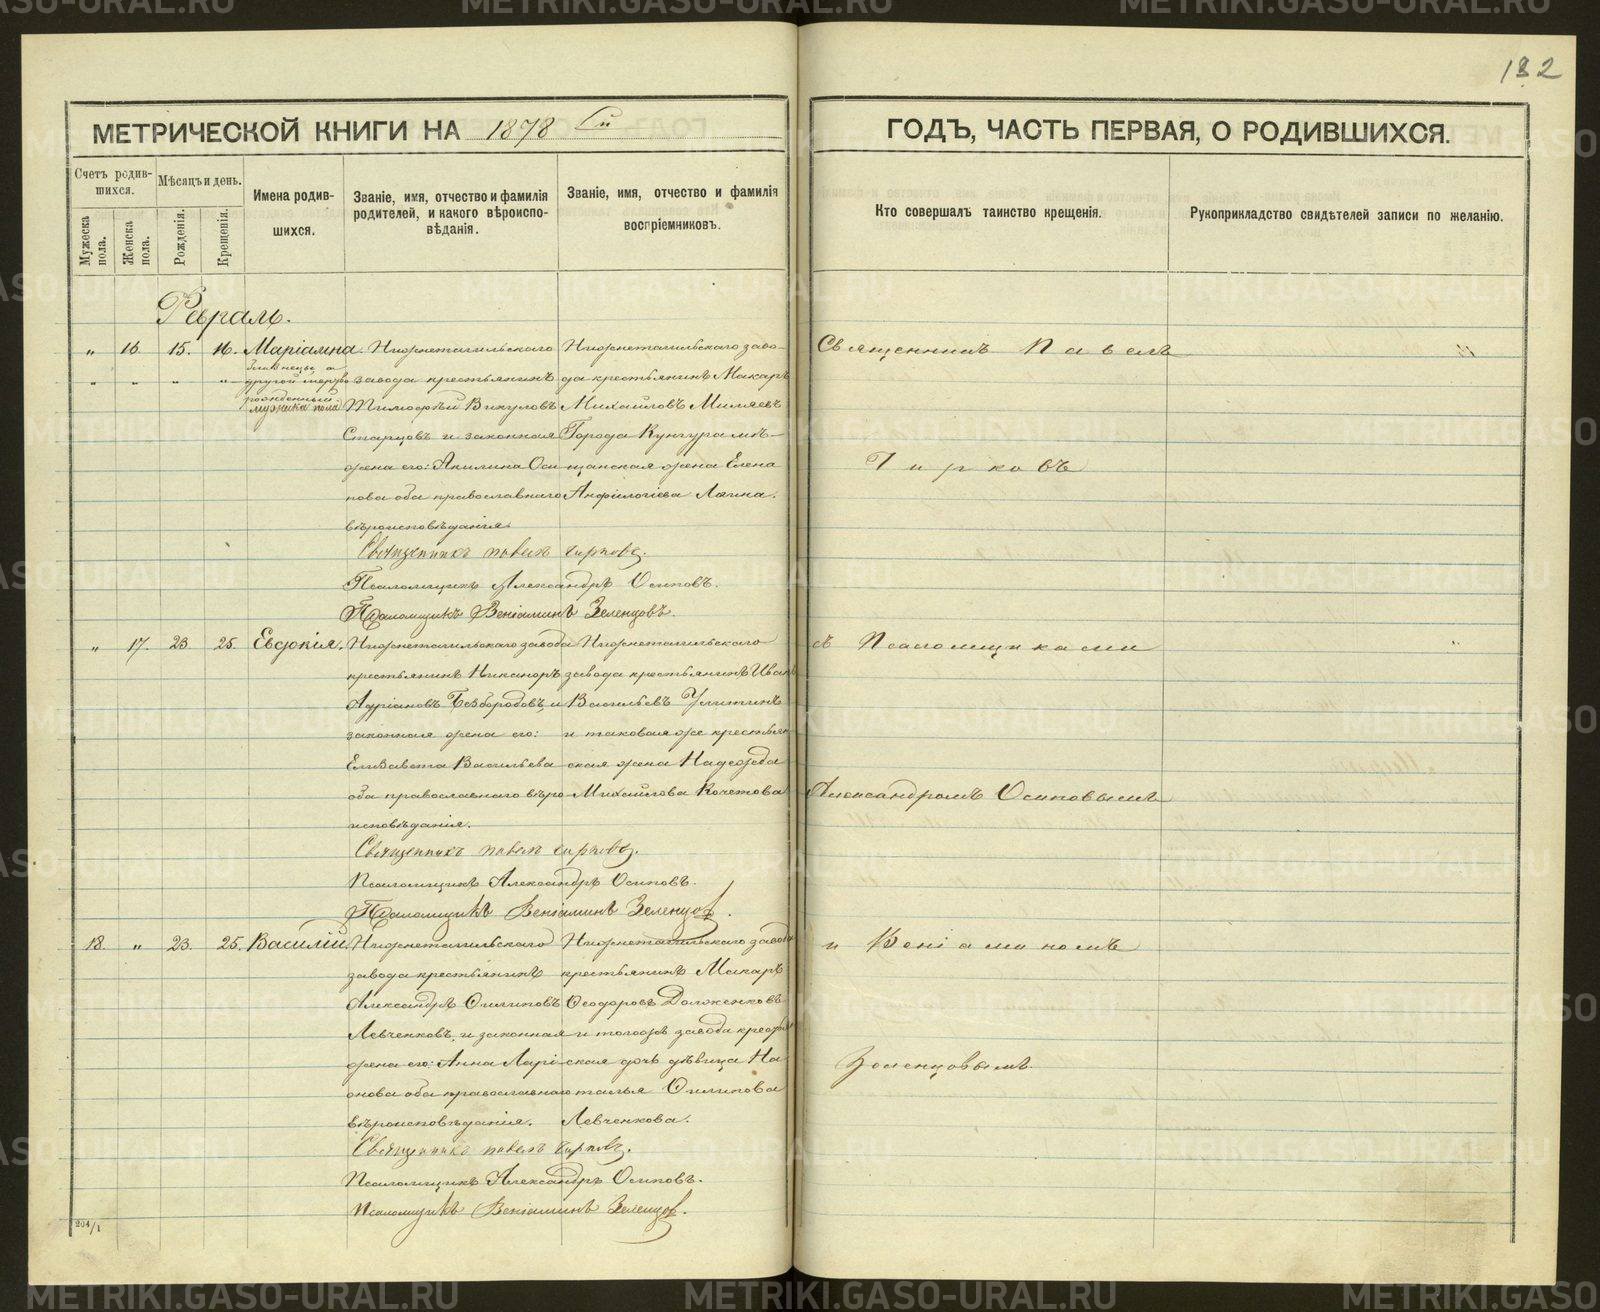 132
МЕТРИЧЕСКОЙ КНИГИ НА 1878 й
ГОДЪ, ЧАСТЬ ПЕРВАЯ, О РОДИВШИХСЯ.
Счетъ родив-
шихся.
Мужеска пола.
Женска пола.
Мѣсяцъ и день.
Рожденія.
Крещенія.
Имена родив-
шихся.
Званіе, имя, отчество и фамилія
родителей, и какого вѣроиспо-
вѣданія.
Званіе, имя, отчество и фамилія
воспріемниковъ.
Кто совершалъ таинство крещенія.
Рукоприкладство свидѣтелей записи по желанію.
Февраль.
„ 16. 15. 16. Маріамна. Нижнетагильскаго Нижнетагильскаго заво-
близнецы а
другой мертво завода крестьянинъ да крестьянинъ Макаръ
рожденный
мужика пола Тимофѣй Викуловъ Михайловъ Миляевъ
Старцовъ и законная Города Кунгура мѣ-
жена его: Акилина Оси щанская жена Елена
пова оба православнаго Анфилогіева
вѣроисповѣданія.
Священникъ Павелъ Гирковъ.
Псаломщикъ Александръ Осиповъ.
Псаломщикъ Веніаминъ Зеленцовъ.
„ 17. 23. 25. Евдокія. Нижнетагильскаго завода Нижнетагильскаго
крестьянинъ Никаноръ завода крестьянинъ Иванъ
Адріановъ Безбородовъ, и Васильевъ Улитинъ
законная жена его: и таковая же крестьян
Елизавета Васильева ская жена Надежда
оба православнаго вѣро Михайлова Кочетова
исповѣданія.
Священникъ Павелъ Гирковъ.
Псаломщикъ Александръ Осиповъ.
Псаломщикъ Веніаминъ Зеленцовъ.
18. „ 23. 25. Василій. Нижнетагильскаго Нижнетагильскаго завода
завода крестьянинъ крестьянинъ Макаръ
Александръ Филиповъ Феодоровъ Долженковъ
Левченковъ, и законная и тогоже завода крестьян
жена его: Анна Ларі ская дочь дѣвица На
онова оба православнаго талья Филипова
вѣроисповѣданія. Левченкова.
Священникъ Павелъ Гирковъ.
Псаломщикъ Александръ Осиповъ.
Псаломщикъ Веніаминъ Зеленцовъ.
204/1
Священникъ Павелъ
Гирковъ
съ Псаломщиками
Александромъ Осиповымъ
и Веніаминомъ
Зеленцовымъ.
METRIKI.GASO-URAL.RU